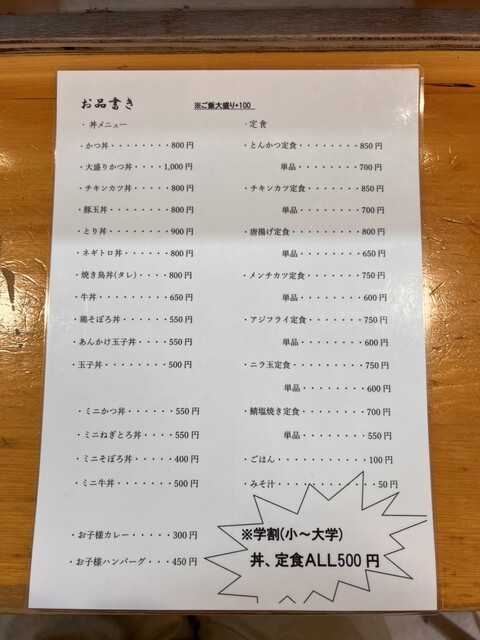 お品書き
※ご飯大盛り+100
・丼メニュー
・かつ丼・・・・・・・・800円
・大盛りかつ丼・・・・1,000円
・チキンカツ丼・・・・・800円
・豚玉丼・・・・・・・・800円
・とり丼・・・・・・・・900円
・ネギトロ丼・・・・・・800円
・焼き鳥丼(タレ)・・・・800円
・牛丼・・・・・・・・・650円
・鶏そぼろ丼・・・・・・550円
・あんかけ玉子丼・・・・550円
・玉子丼・・・・・・・・500円
・ミニかつ丼・・・・・・550円
・ミニねぎとろ丼・・・・550円
・ミニそぼろ丼・・・・・400円
・ミニ牛丼・・・・・・・500円
・お子様カレー・・・・・300円
・お子様ハンバーグ・・・450円
・定食
・とんかつ定食・・・・・850円
単品・・・・・700円
・チキンカツ定食・・・・850円
単品・・・・・700円
・唐揚げ定食・・・・・・800円
単品・・・・・650円
・メンチカツ定食・・・・750円
単品・・・・・600円
・アジフライ定食・・・・750円
単品・・・・・600円
・ニラ玉定食・・・・・・750円
単品・・・・・600円
・鯖塩焼き定食・・・・・700円
単品・・・・・550円
・ごはん・・・・・・・・・・100円
・みそ汁・・・・・・・・・・・50円
※学割(小～大学)
丼、定食ALL500円